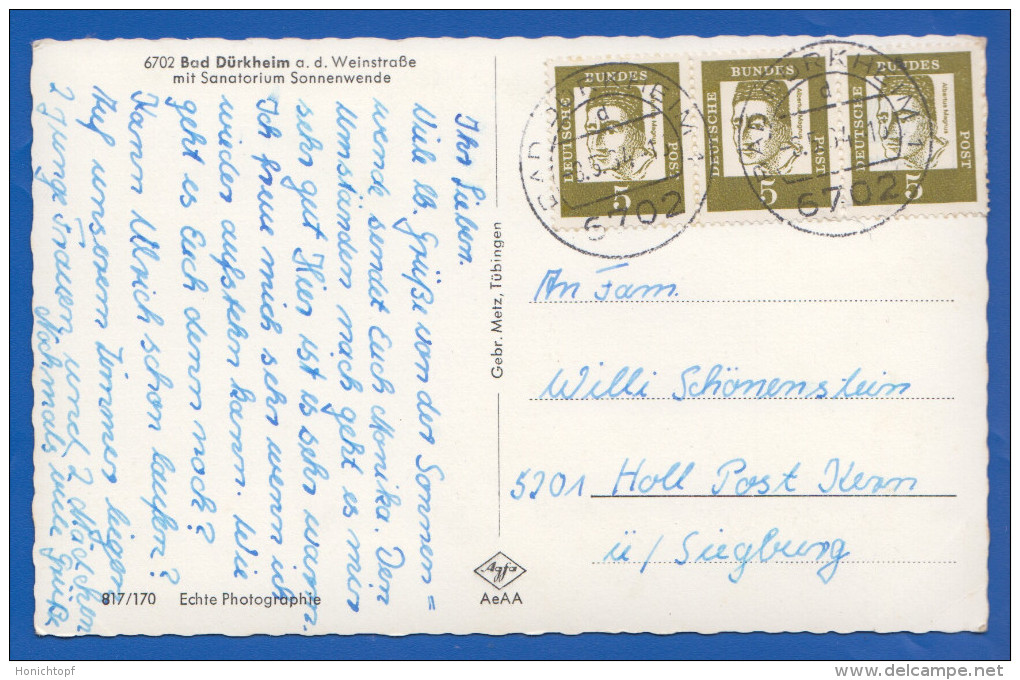 6702 Bad Dürkheim a. d. Weinstraße
mit Sanatorium Sonnenwende
Ihr Lieben.
Viele lb. Grüße von der Sonnen=
wende sendet Euch Monika. Den
Umständen nach geht es mir
sehr gut. Hier ist es sehr warm.
Ich freue mich sehr wenn ich
wieder aufstehn kann. Wie
geht es Euch denn noch?
Kann Ulrich schon laufen?
Auf unserem Zimmer liegen
2 junge Frauen und 2 Mädchen
Nochmals viele Grüße
817/170 Echte Photographie
Gebr. Metz, Tübingen
Agfa
AeAA
BUNDES
DEUTSCHE
POST
Albertus Magnus
5
BUNDES
DEUTSCHE
POST
Albertus Magnus
5
BUNDES
POST
Albertus Magnus
5
BAD DÜRKHEIM
d
6702
BAD DÜRKHEIM
d
6702
An Fam.
Willi Schönenstein
5201 Holl Post Kern
ü/Siegburg
Honichtopf
www.delcampe.net